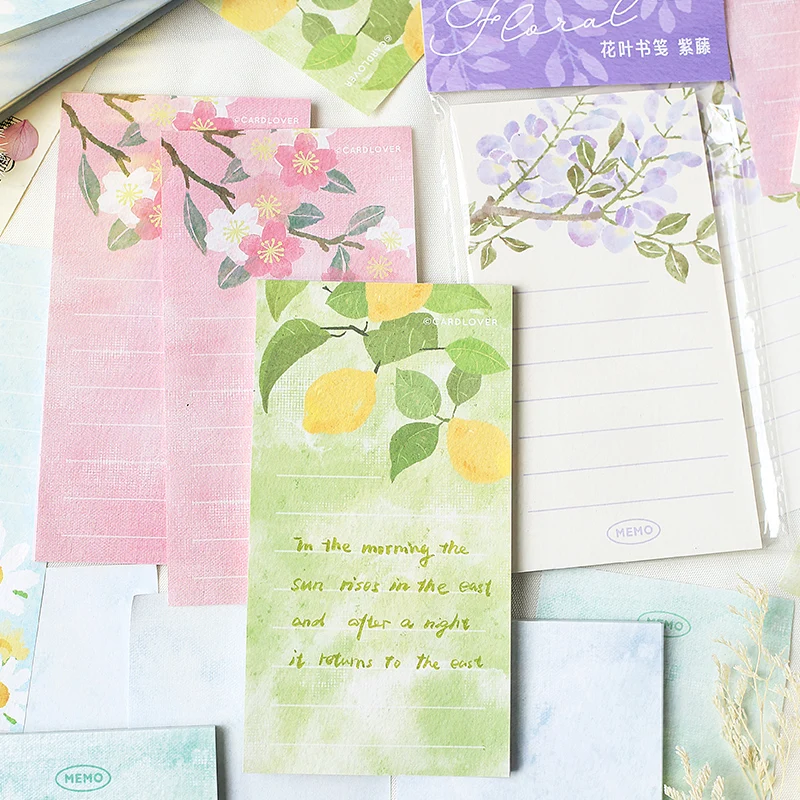 Floral
花叶书笺 紫藤
©CARDLOVER
©CARDLOVER
©CARDLOVER
©CARDLOVER
In the morning the
sun rises in the east
and after a night
it returns to the east
MEMO
MEMO
MEMO